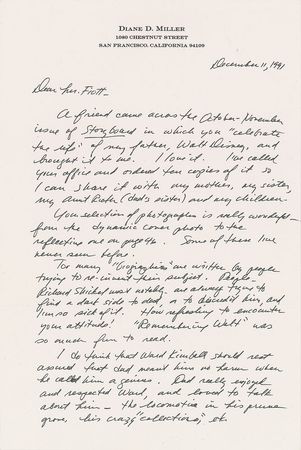 DIANE D. MILLER
1080 CHESTNUT STREET
SAN FRANCISCO, CALIFORNIA 94109
December 11, 1991
Dear Mr.
A friend came across the October-November
issue of Storyboard in which you "celebrate
the life" of my father, Walt Disney, and
brought it to me. I love it. I've called
your office and ordered ten copies of it so
I can share it with my mother, my sister,
my Aunt Ruth (dad's sister) and my children.
Your selection of photographs is really wonderful -
from the dynamic cover photo to the
reflective one on page 46. Some of these I've
never seen before.
Too many "biographies" are written by people
trying to re-invent their subject. People -
Richard Shickel most notably, are always trying to
find a dark side to dad, or to discredit him, and
I'm so sick of it. How refreshing to encounter
your attitude! "Remembering Walt" was
so much fun to read.
I do think that Ward Kimball should rest
assured that dad meant him no harm when
he called him a genius. Dad really enjoyed
and respected Ward, and loved to talk
about him - the locomotive in his
grove, his crazy "collections", etc.